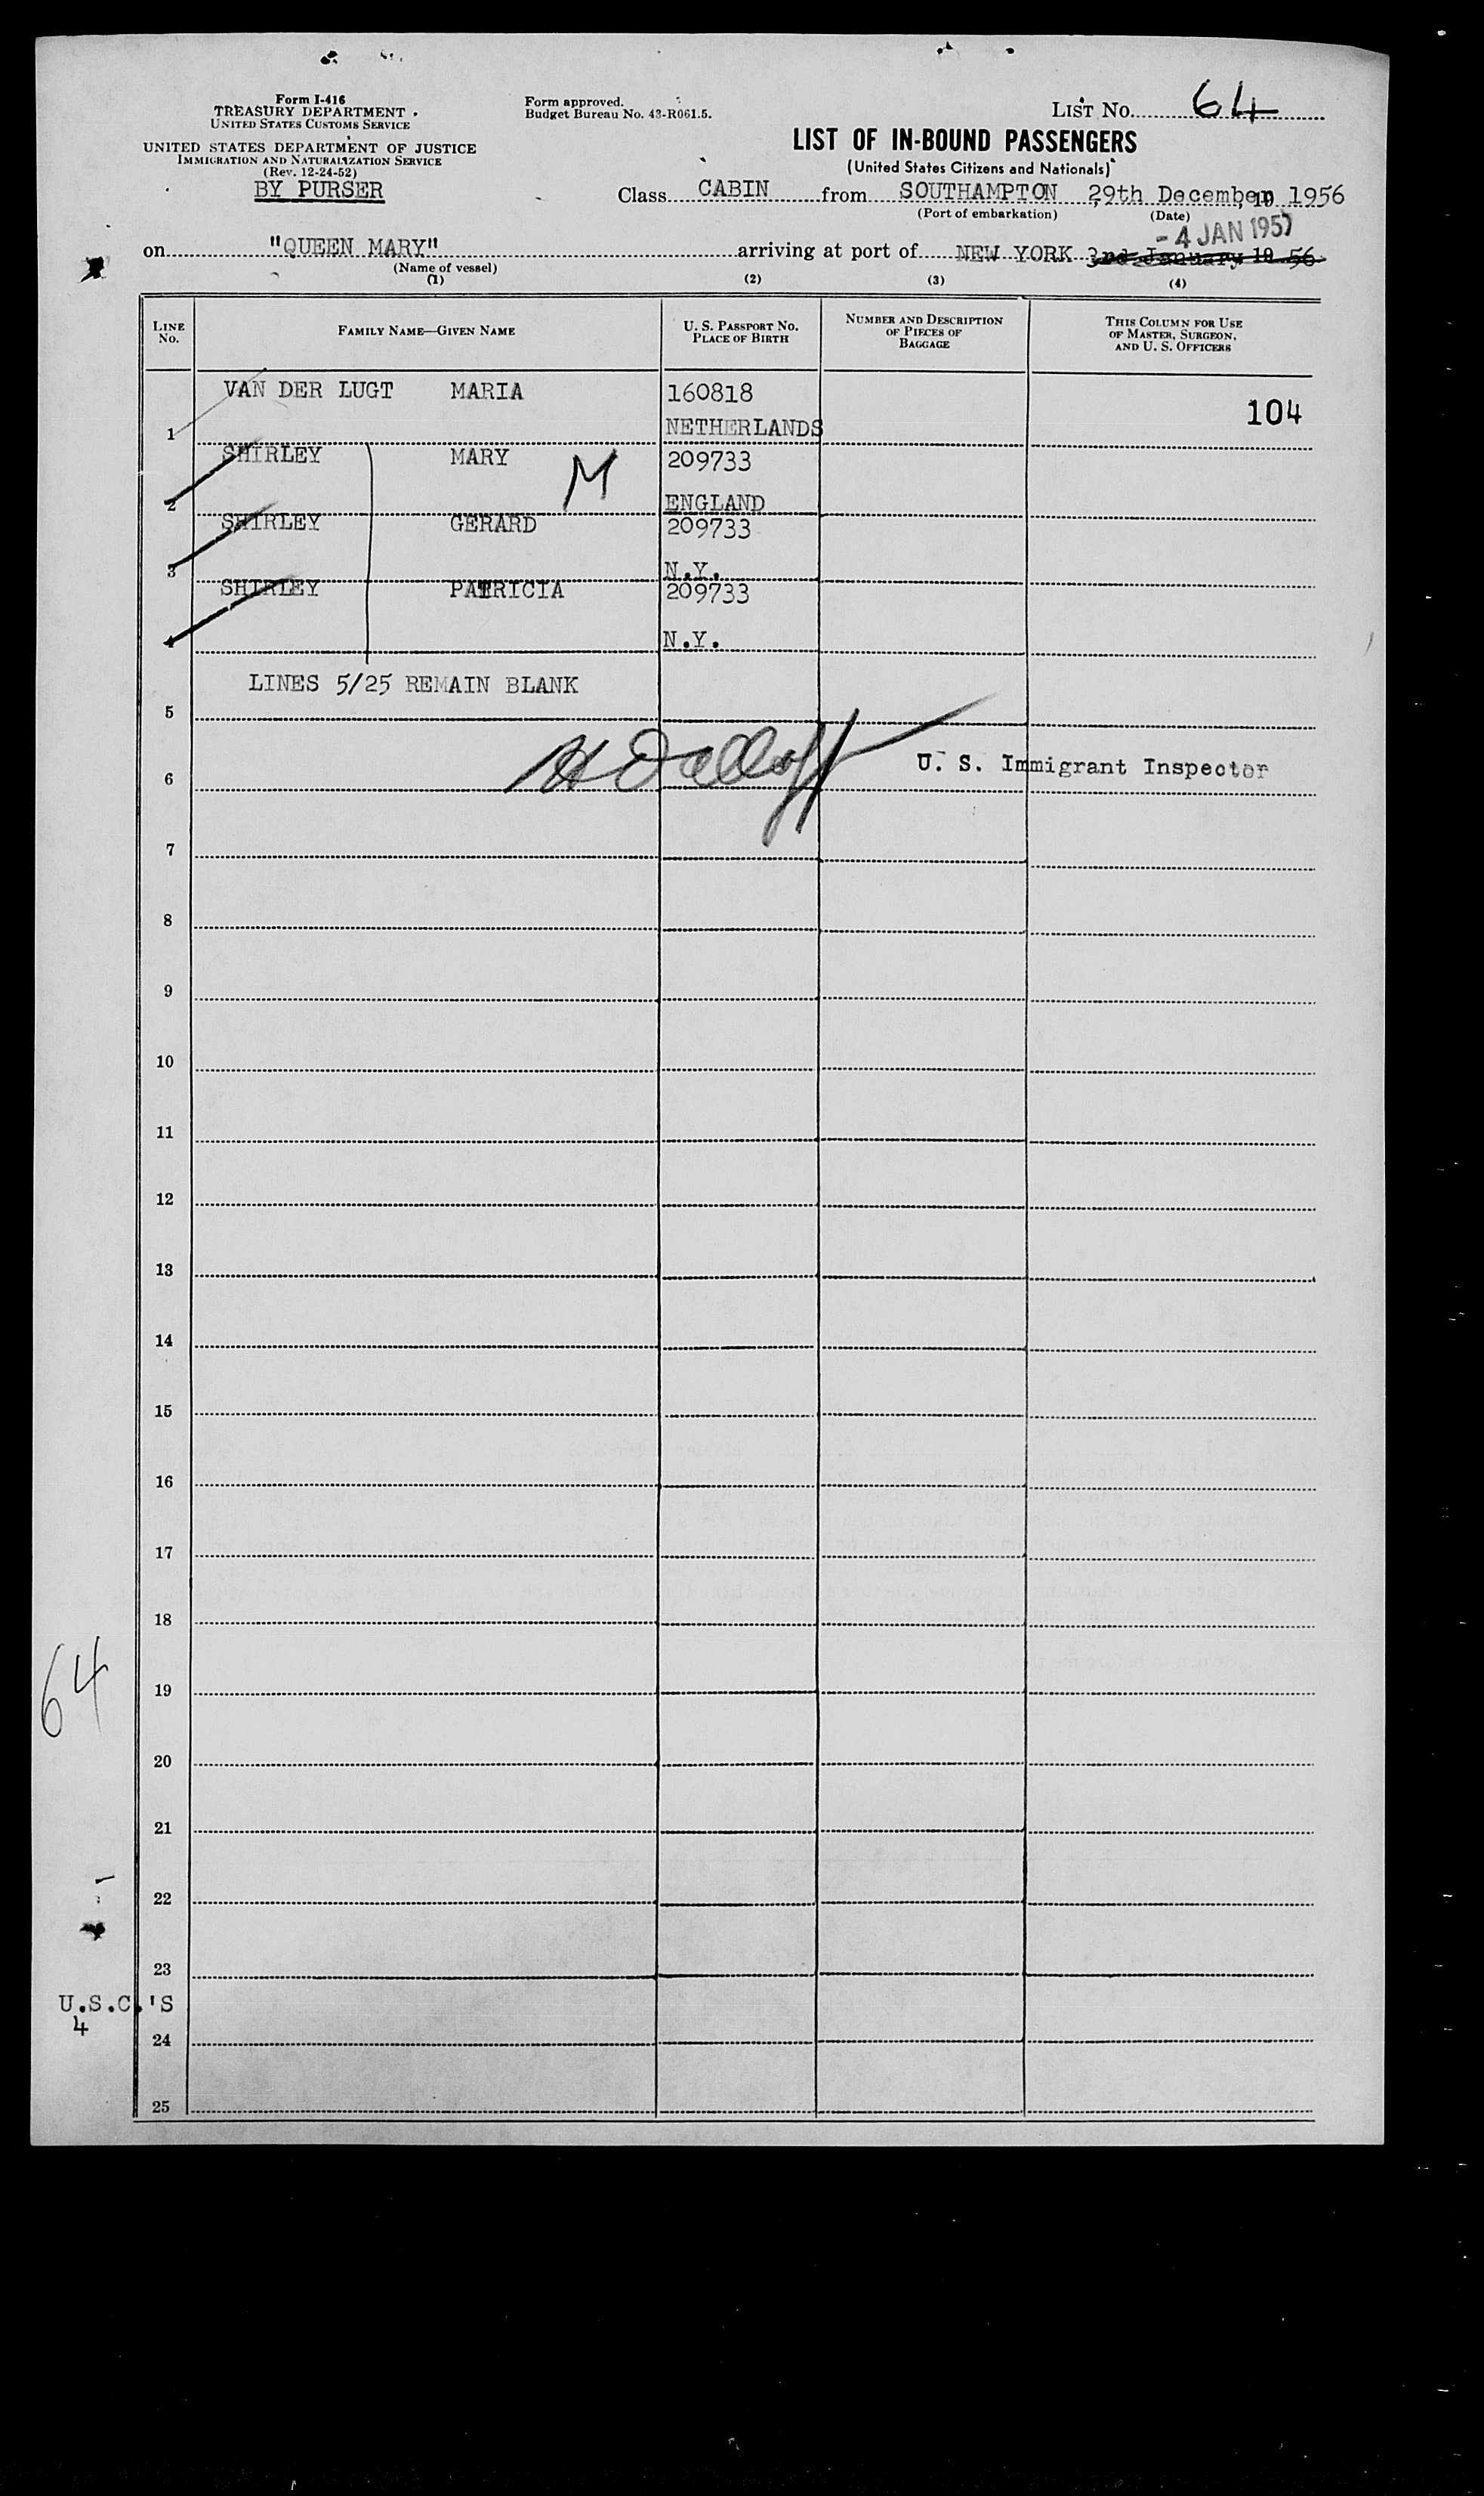 Form I-416
TREASURY DEPARTMENT
UNITED STATES CUSTOMS SERVICE
UNITED STATES DEPARTMENT OF JUSTICE
IMMIGRATION AND NATURALIZATION SERVICE
(Rev. 12-24-52)
BY PURSER
Form approved.
Budget Bureau No. 43-R061.5.
LIST No. 64
LIST OF IN-BOUND PASSENGERS
(United States Citizens and Nationals)
Class CABIN from SOUTHAMPTON 29th December, 19 1956
(Port of embarkation) (Date)
- 4 JAN 1957
on "QUEEN MARY" arriving at port of NEW YORK 3rd January 19 56
(Name of vessel)
(1) (2) (3) (4)
LINE No. FAMILY NAME—GIVEN NAME U. S. PASSPORT No. PLACE OF BIRTH NUMBER AND DESCRIPTION OF PIECES OF BAGGAGE THIS COLUMN FOR USE OF MASTER, SURGEON, AND U. S. OFFICERS
VAN DER LUGT MARIA 160818
104
1 NETHERLANDS
SHIRLEY MARY M 209733
2 ENGLAND
SHIRLEY GERARD 209733
3 N.Y.
SHIRLEY PATRICIA 209733
4 N.Y.
LINES 5/25 REMAIN BLANK
5
U. S. Immigrant Inspector
6
7
8
9
10
11
12
13
14
15
16
17
18
64
19
20
21
22
23
U.S.C.'S
4
24
25